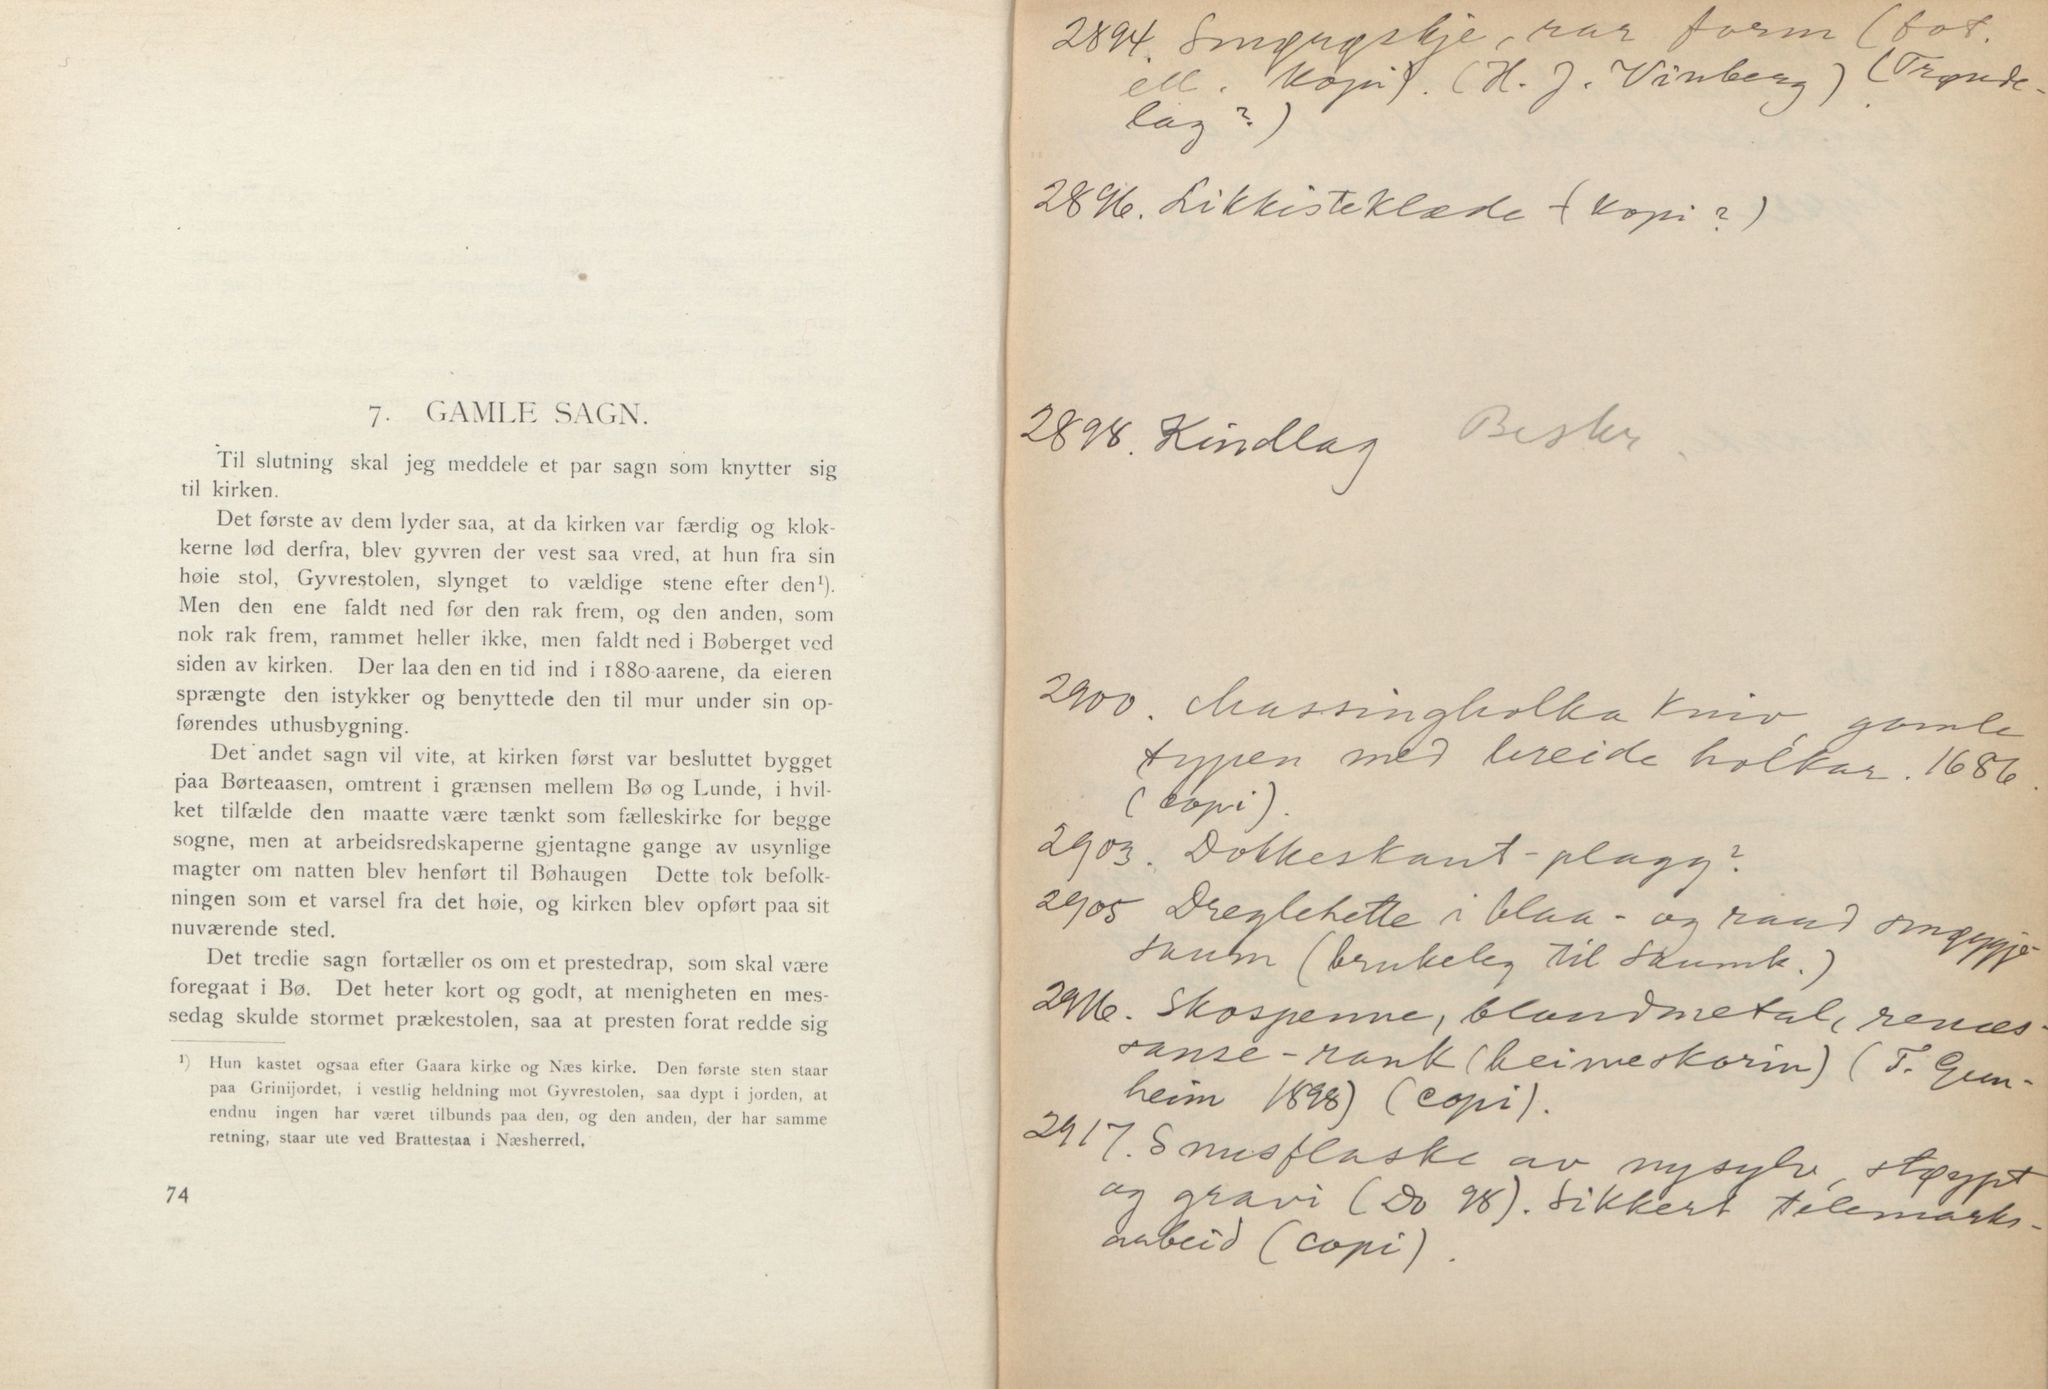 7. GAMLE SAGN.
Til slutning skal jeg meddele et par sagn som knytter sig
til kirken.
Det første av dem lyder saa, at da kirken var færdig og klok-
kerne lød derfra, blev gyvren der vest saa vred, at hun fra sin
høie stol, Gyvrestolen, slynget to vældige stene efter den¹).
Men den ene faldt ned før den rak frem, og den anden, som
nok rak frem, rammet heller ikke, men faldt ned i Bøberget ved
siden av kirken. Der laa den en tid ind i 1880-aarene, da eieren
sprængte den istykker og benyttede den til mur under sin op-
førendes uthusbygning.
Det andet sagn vil vite, at kirken først var besluttet bygget
paa Børteaasen, omtrent i grænsen mellem Bø og Lunde, i hvil-
ket tilfælde den maatte være tænkt som fælleskirke for begge
sogne, men at arbeidsredskaperne gjentagne gange av usynlige
magter om natten blev henført til Bøhaugen Dette tok befolk-
ningen som et varsel fra det høie, og kirken blev opført paa sit
nuværende sted.
Det tredie sagn fortæller os om et prestedrap, som skal være
foregaat i Bø. Det heter kort og godt, at menigheten en mes-
sedag skulde stormet prækestolen, saa at presten forat redde sig
¹) Hun kastet ogsaa efter Gaara kirke og Næs kirke. Den første sten staar
paa Grinijordet, i vestlig heldning mot Gyvrestolen, saa dypt i jorden, at
endnu ingen har været tilbunds paa den, og den anden, der har samme
retning, staar ute ved Brattestaa i Næsherred.
74
2894. Smøyøskje, rar form (fot.
ell. kopi). (H. J. Vinberg) (Trønde-
lag?)
2896. Likkisteklæde (kopi?)
2898. Kindlag Beskr.
2900. Massingholka kniv, gamle
typen med breide holkar. 1686.
(copi).
2903. Dokkeskant-plagg?
2905 Dreglehette i blaa- og raud smøygje-
saum (brukeleg til saumk.)
2916. Skospenne, blandmetal, renæs-
sanse-rank (heimeskorin) (T. Grun-
heim 1898) (copi).
2917. Snusflaske av nysylv, støypt
og gravi (Do 98). Sikkert telemarks-
arbeid (copi).